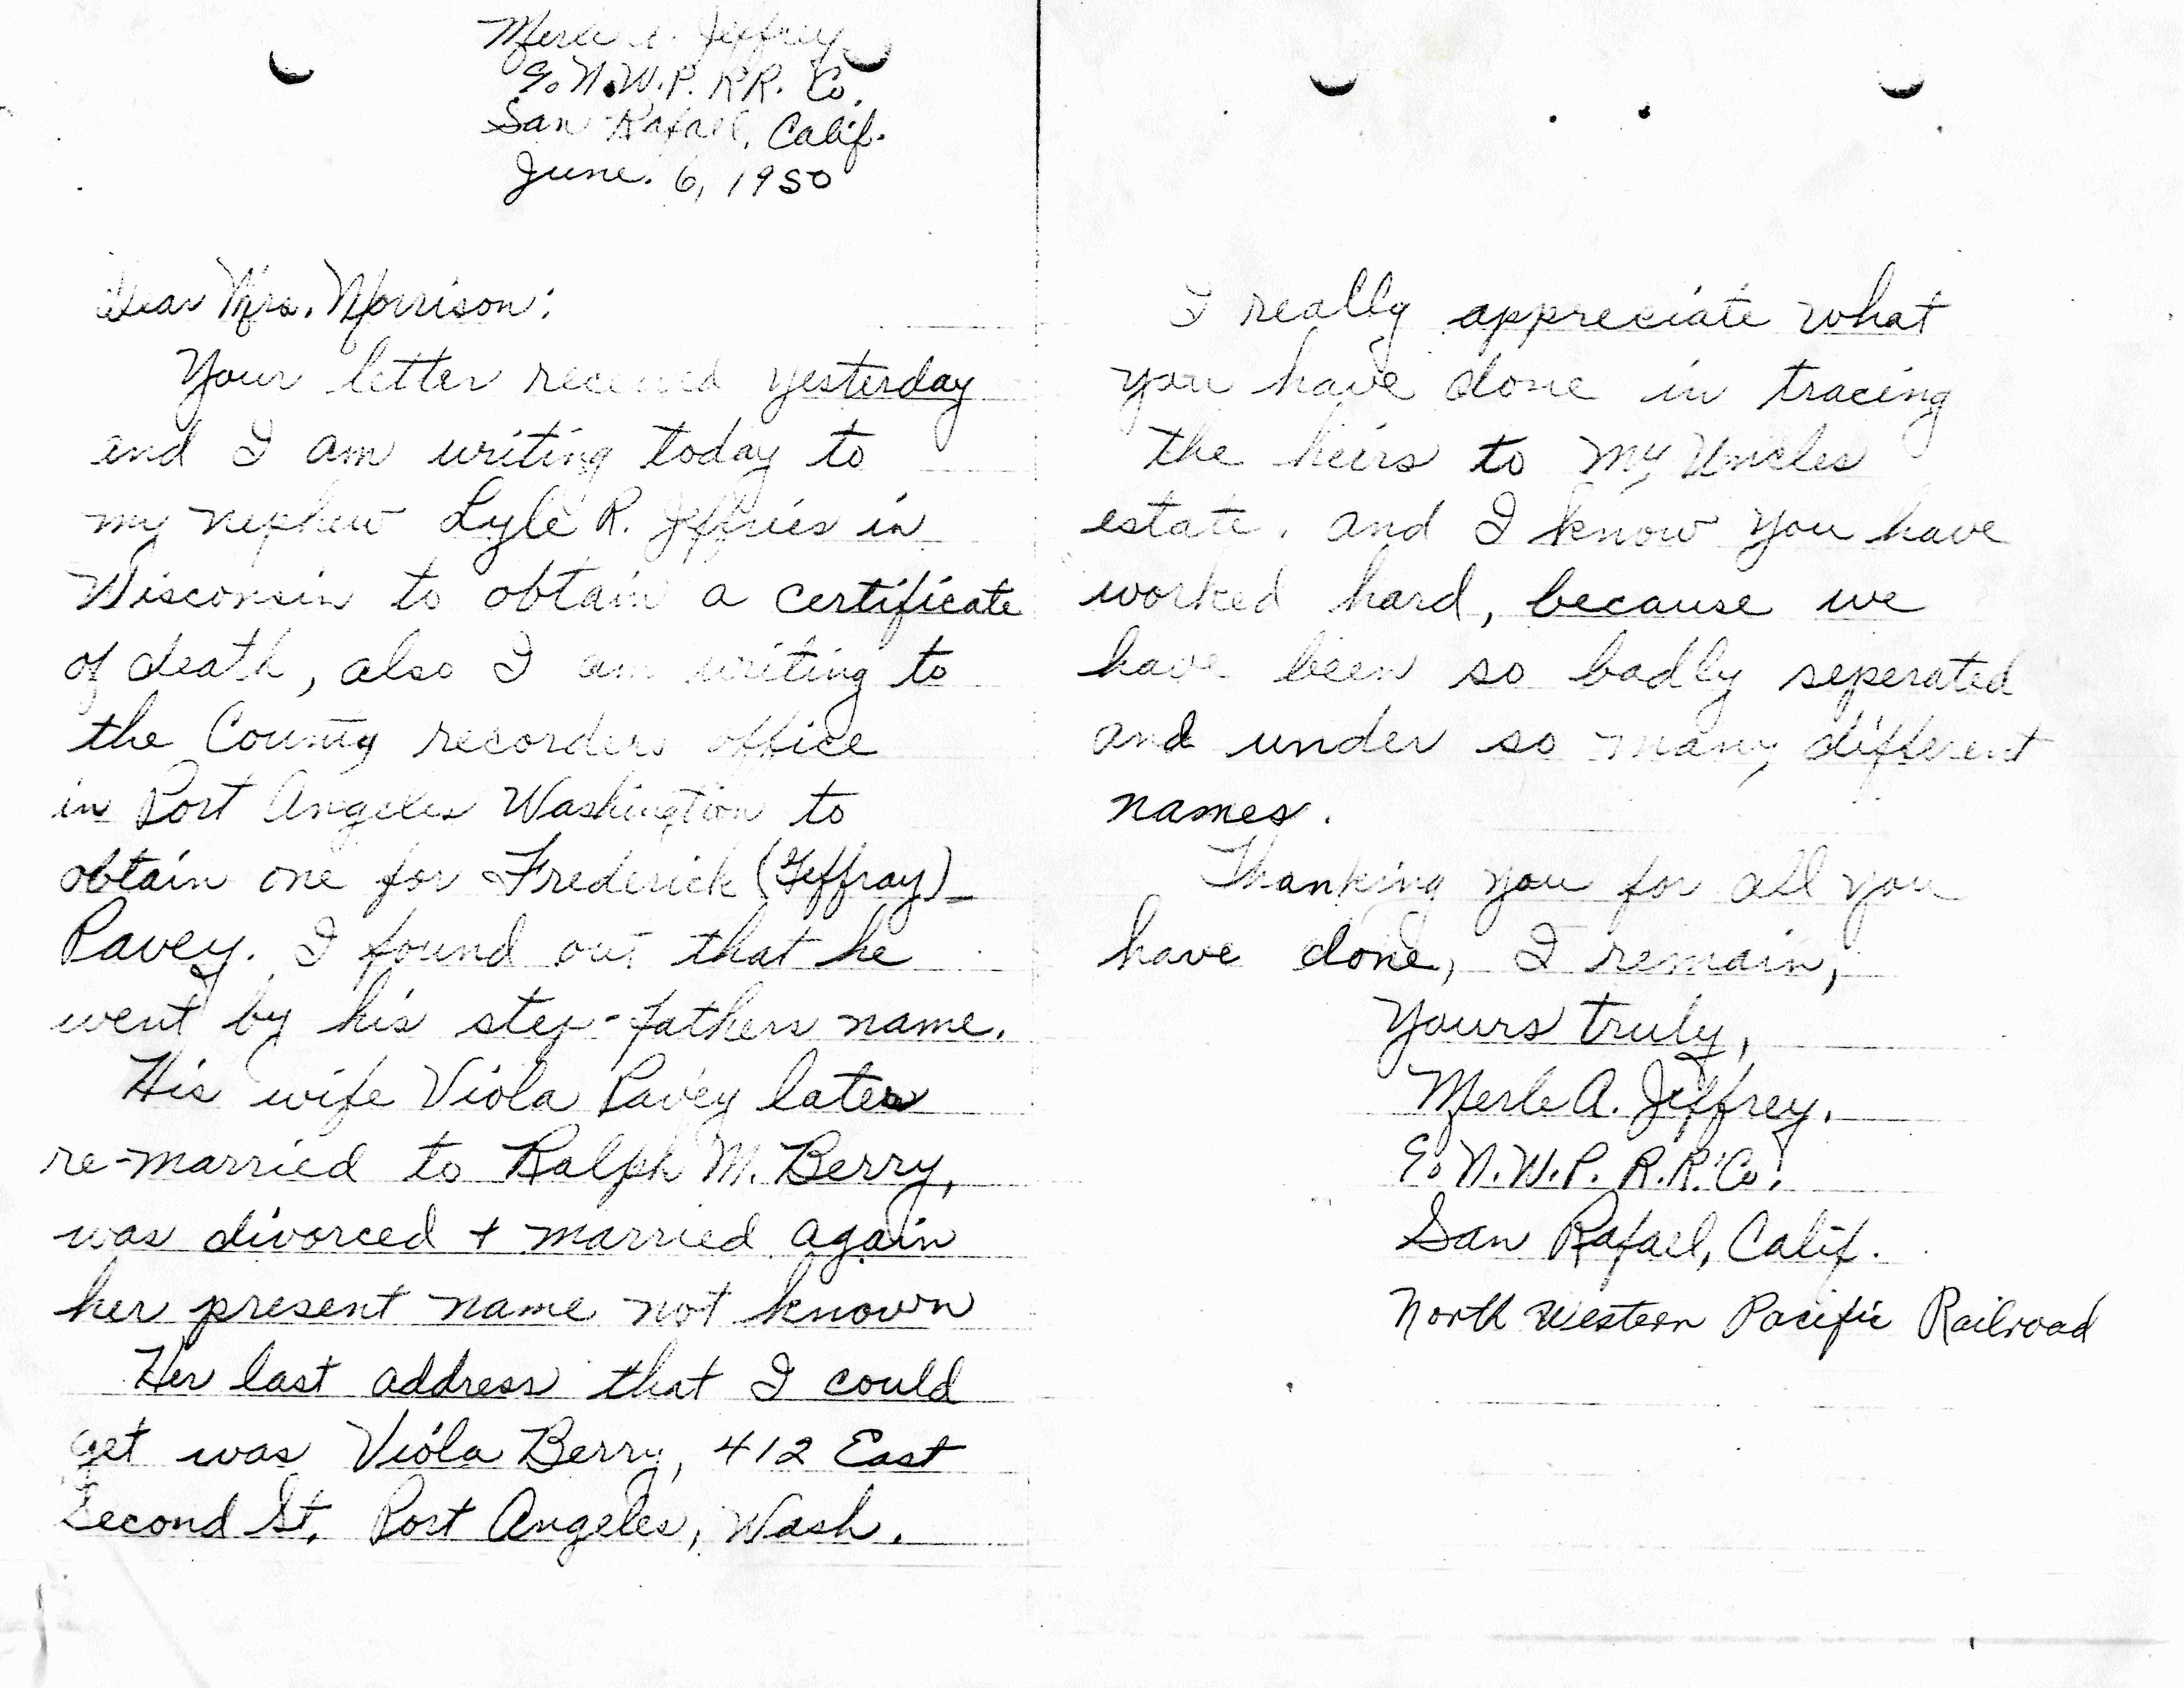 Merle A. Jeffrey
% N.W.P. RR. Co.
San Rafael, Calif.
June. 6, 1950
Dear Mrs. Morrison:
Your letter received yesterday
and I am writing today to
my nephew Lyle R. Jeffries in
Wisconsin to obtain a certificate
of death, also I am writing to
the County recorders office
in Port Angeles Washington to
obtain one for Frederick (Jeffray)
Pavey. I found out that he
went by his step-fathers name.
His wife Viola Pavey later
re-married to Ralph M. Berry,
was divorced + married again
her present name not known
Her last address that I could
get was Viola Berry, 412 East
Second St. Port Angeles, Wash.
I really appreciate what
you have done in tracing
the heirs to my Uncles
estate. and I know you have
worked hard, because we
have been so badly seperated
and under so many different
names.
Thanking you for all you
have done, I remain,
Yours truly,
Merle A. Jeffrey.
% N.W.P. R.R. Co.
San Rafael, Calif.
North Western Pacific Railroad